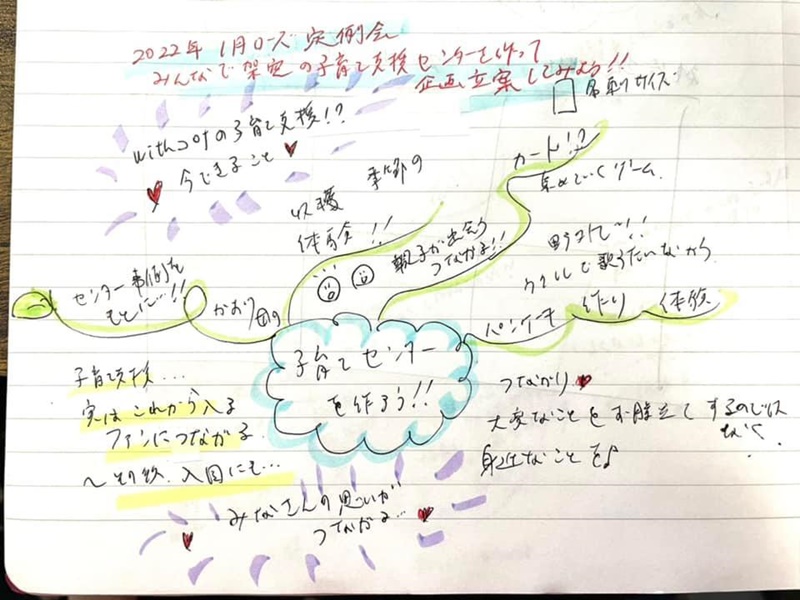 2022年 1月ローズ 定例会
みんなで架空の子育て支援センターを作って
企画立案してみよう!!
名刺サイズ
withコロナの子育て支援!?
今できること
カード!?
集めていくゲーム
季節の
収穫
体験!!
親子が出会う
つながる!!
歌うコト〜!!
ウクレレで歌うたいながら
センター事例を
もとに…!!
かおり
パンケーキ 作り 体験
子育てセンター
を作ろう!!
子育て支援…
実はこれから入る
ファンにつながる
入園にも…
つながり
大変なことをお膳立てするのではなく
身近なことを♪
みなさんの思いが
つながる…